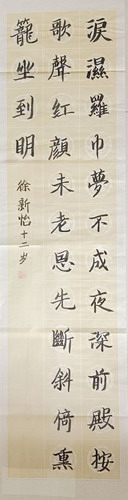 淚濕羅巾夢不成夜深前殿按
歌聲紅顏未老恩先斷斜倚熏
籠坐到明
徐新怡十二岁